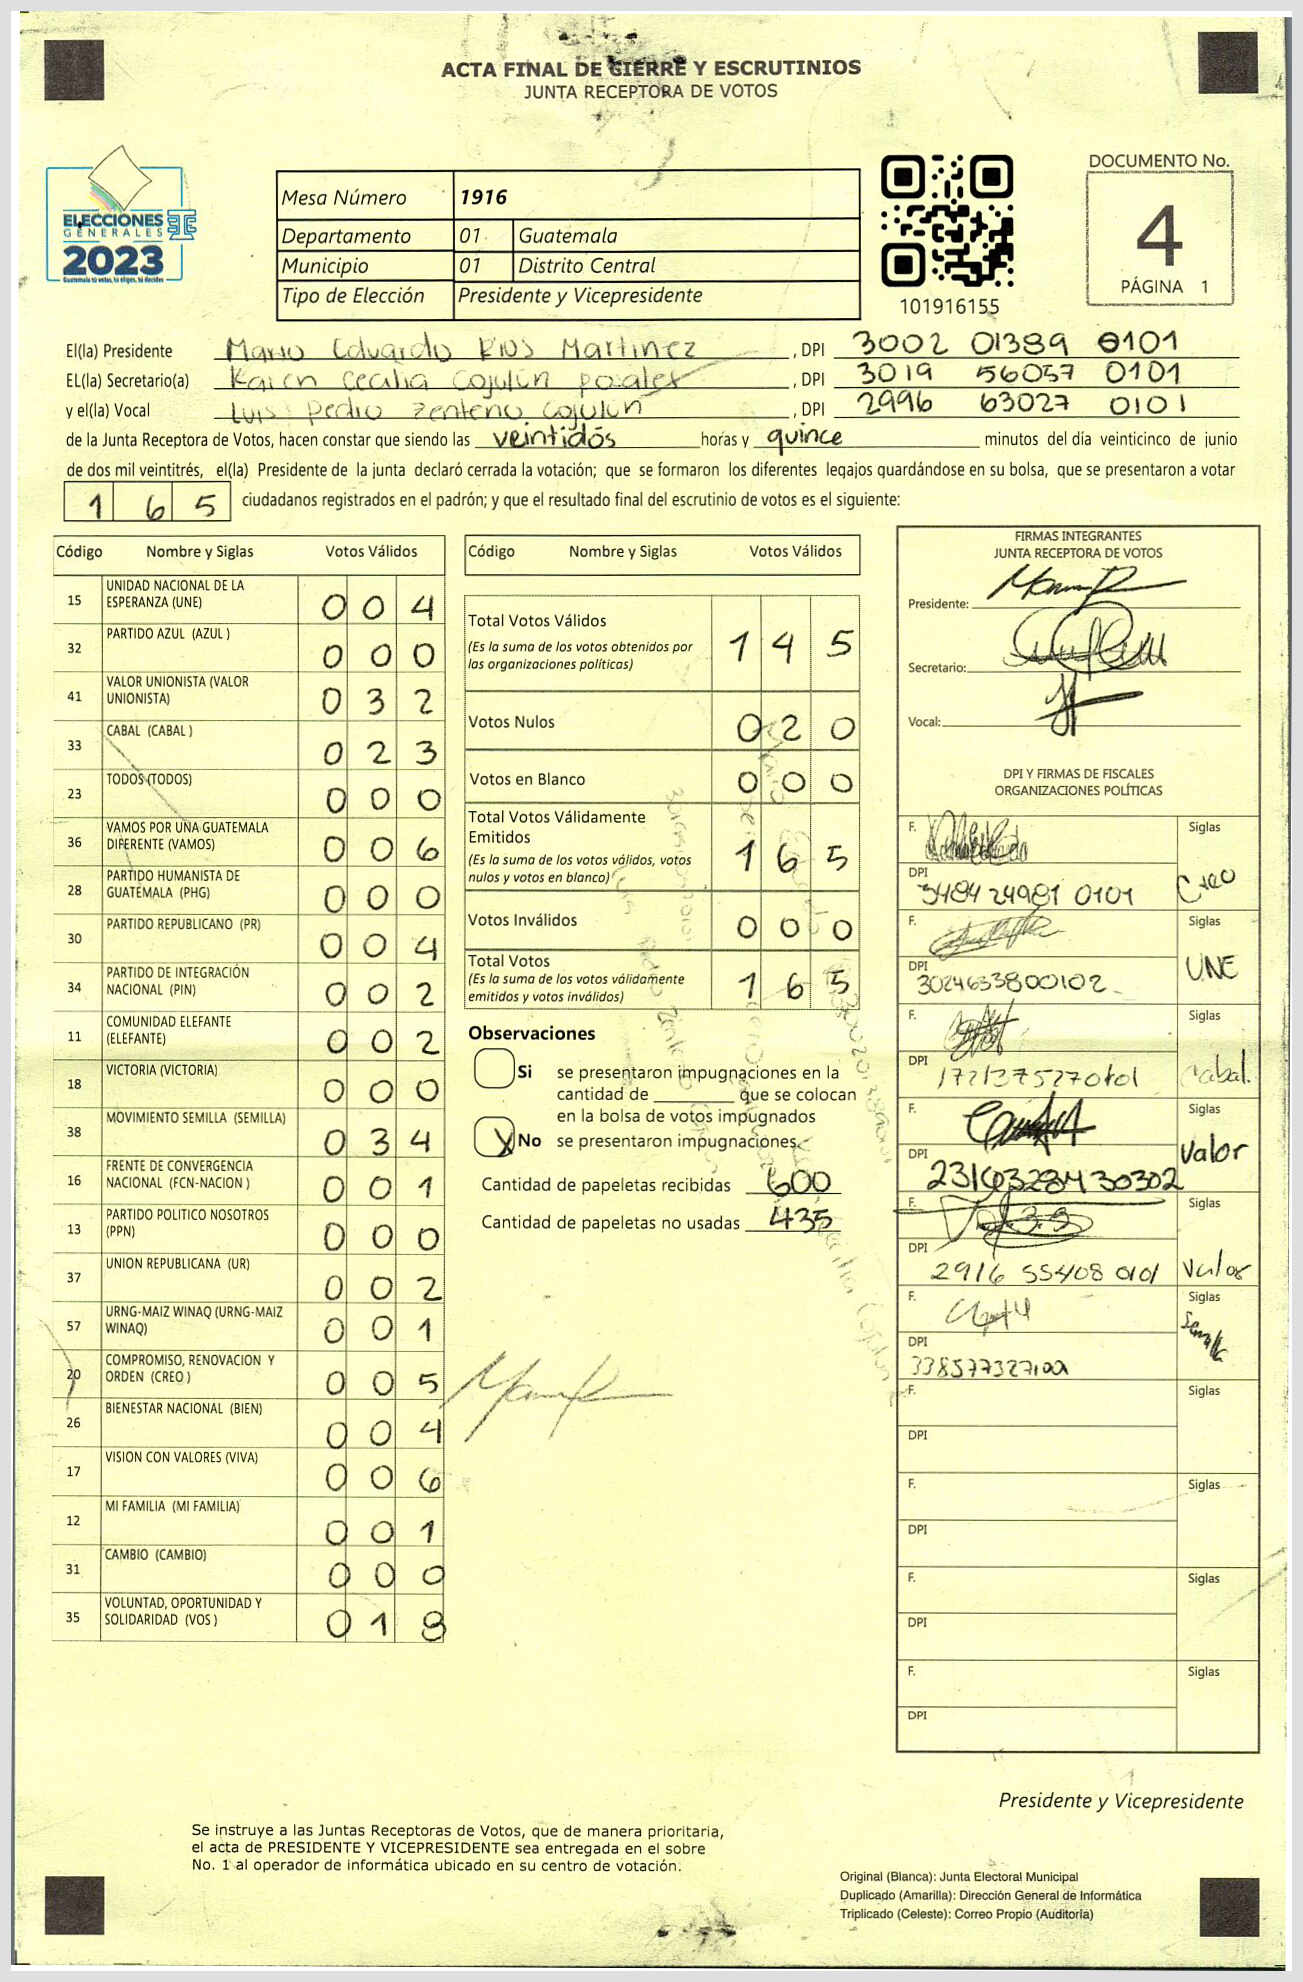 ACTA FINAL DE CIERRE Y ESCRUTINIOS
JUNTA RECEPTORA DE VOTOS
ELECCIONES
GENERALES
2023
Guatemala tú votas, tú eliges, tú decides
Mesa Número 1916
Departamento 01 Guatemala
Municipio 01 Distrito Central
Tipo de Elección Presidente y Vicepresidente
101916155
DOCUMENTO No.
4
PÁGINA 1
El(la) Presidente Mario Eduardo Rios Martinez , DPI 3002 01389 0101
EL(la) Secretario(a) Karen Cecilia Cojulún , DPI 3019 56057 0101
y el(la) Vocal Luis Pedro Zenteno Cojulún , DPI 2996 63027 0101
de la Junta Receptora de Votos, hacen constar que siendo las veintidós horas y quince minutos del día veinticinco de junio
de dos mil veintitrés, el(la) Presidente de la junta declaró cerrada la votación; que se formaron los diferentes legajos guardándose en su bolsa, que se presentaron a votar
165 ciudadanos registrados en el padrón; y que el resultado final del escrutinio de votos es el siguiente:
Código Nombre y Siglas Votos Válidos
15 UNIDAD NACIONAL DE LA ESPERANZA (UNE) 004
32 PARTIDO AZUL (AZUL ) 000
41 VALOR UNIONISTA (VALOR UNIONISTA) 032
33 CABAL (CABAL ) 023
23 TODOS (TODOS) 000
36 VAMOS POR UNA GUATEMALA DIFERENTE (VAMOS) 006
28 PARTIDO HUMANISTA DE GUATEMALA (PHG) 000
30 PARTIDO REPUBLICANO (PR) 004
34 PARTIDO DE INTEGRACIÓN NACIONAL (PIN) 002
11 COMUNIDAD ELEFANTE (ELEFANTE) 002
18 VICTORIA (VICTORIA) 000
38 MOVIMIENTO SEMILLA (SEMILLA) 034
16 FRENTE DE CONVERGENCIA NACIONAL (FCN-NACION ) 001
13 PARTIDO POLITICO NOSOTROS (PPN) 000
37 UNION REPUBLICANA (UR) 002
57 URNG-MAIZ WINAQ (URNG-MAIZ WINAQ) 001
20 COMPROMISO, RENOVACION Y ORDEN (CREO ) 005
26 BIENESTAR NACIONAL (BIEN) 004
17 VISION CON VALORES (VIVA) 006
12 MI FAMILIA (MI FAMILIA) 001
31 CAMBIO (CAMBIO) 000
35 VOLUNTAD, OPORTUNIDAD Y SOLIDARIDAD (VOS ) 018
Código Nombre y Siglas Votos Válidos
Total Votos Válidos 145
(Es la suma de los votos obtenidos por
las organizaciones políticas)
Votos Nulos 020
Votos en Blanco 000
Total Votos Válidamente
Emitidos 165
(Es la suma de los votos válidos, votos
nulos y votos en blanco)
Votos Inválidos 000
Total Votos 165
(Es la suma de los votos válidamente
emitidos y votos inválidos)
Observaciones
Si se presentaron impugnaciones en la
cantidad de ________ que se colocan
en la bolsa de votos impugnados
X No se presentaron impugnaciones.
Cantidad de papeletas recibidas 600
Cantidad de papeletas no usadas 435
FIRMAS INTEGRANTES
JUNTA RECEPTORA DE VOTOS
Presidente:
Secretario:
Vocal:
DPI Y FIRMAS DE FISCALES
ORGANIZACIONES POLÍTICAS
F. Siglas
DPI 3484 24981 0101 Creo
F. Siglas
DPI 3024633800102 UNE
F. Siglas
DPI Cabal.
F. Siglas
DPI Valor
F. Siglas
DPI 2916 55408 0101 Valor
F. Siglas
DPI Semilla
F. Siglas
DPI
F. Siglas
DPI
F. Siglas
DPI
F. Siglas
DPI
Presidente y Vicepresidente
Se instruye a las Juntas Receptoras de Votos, que de manera prioritaria,
el acta de PRESIDENTE Y VICEPRESIDENTE sea entregada en el sobre
No. 1 al operador de informática ubicado en su centro de votación.
Original (Blanca): Junta Electoral Municipal
Duplicado (Amarilla): Dirección General de Informática
Triplicado (Celeste): Correo Propio (Auditoría)